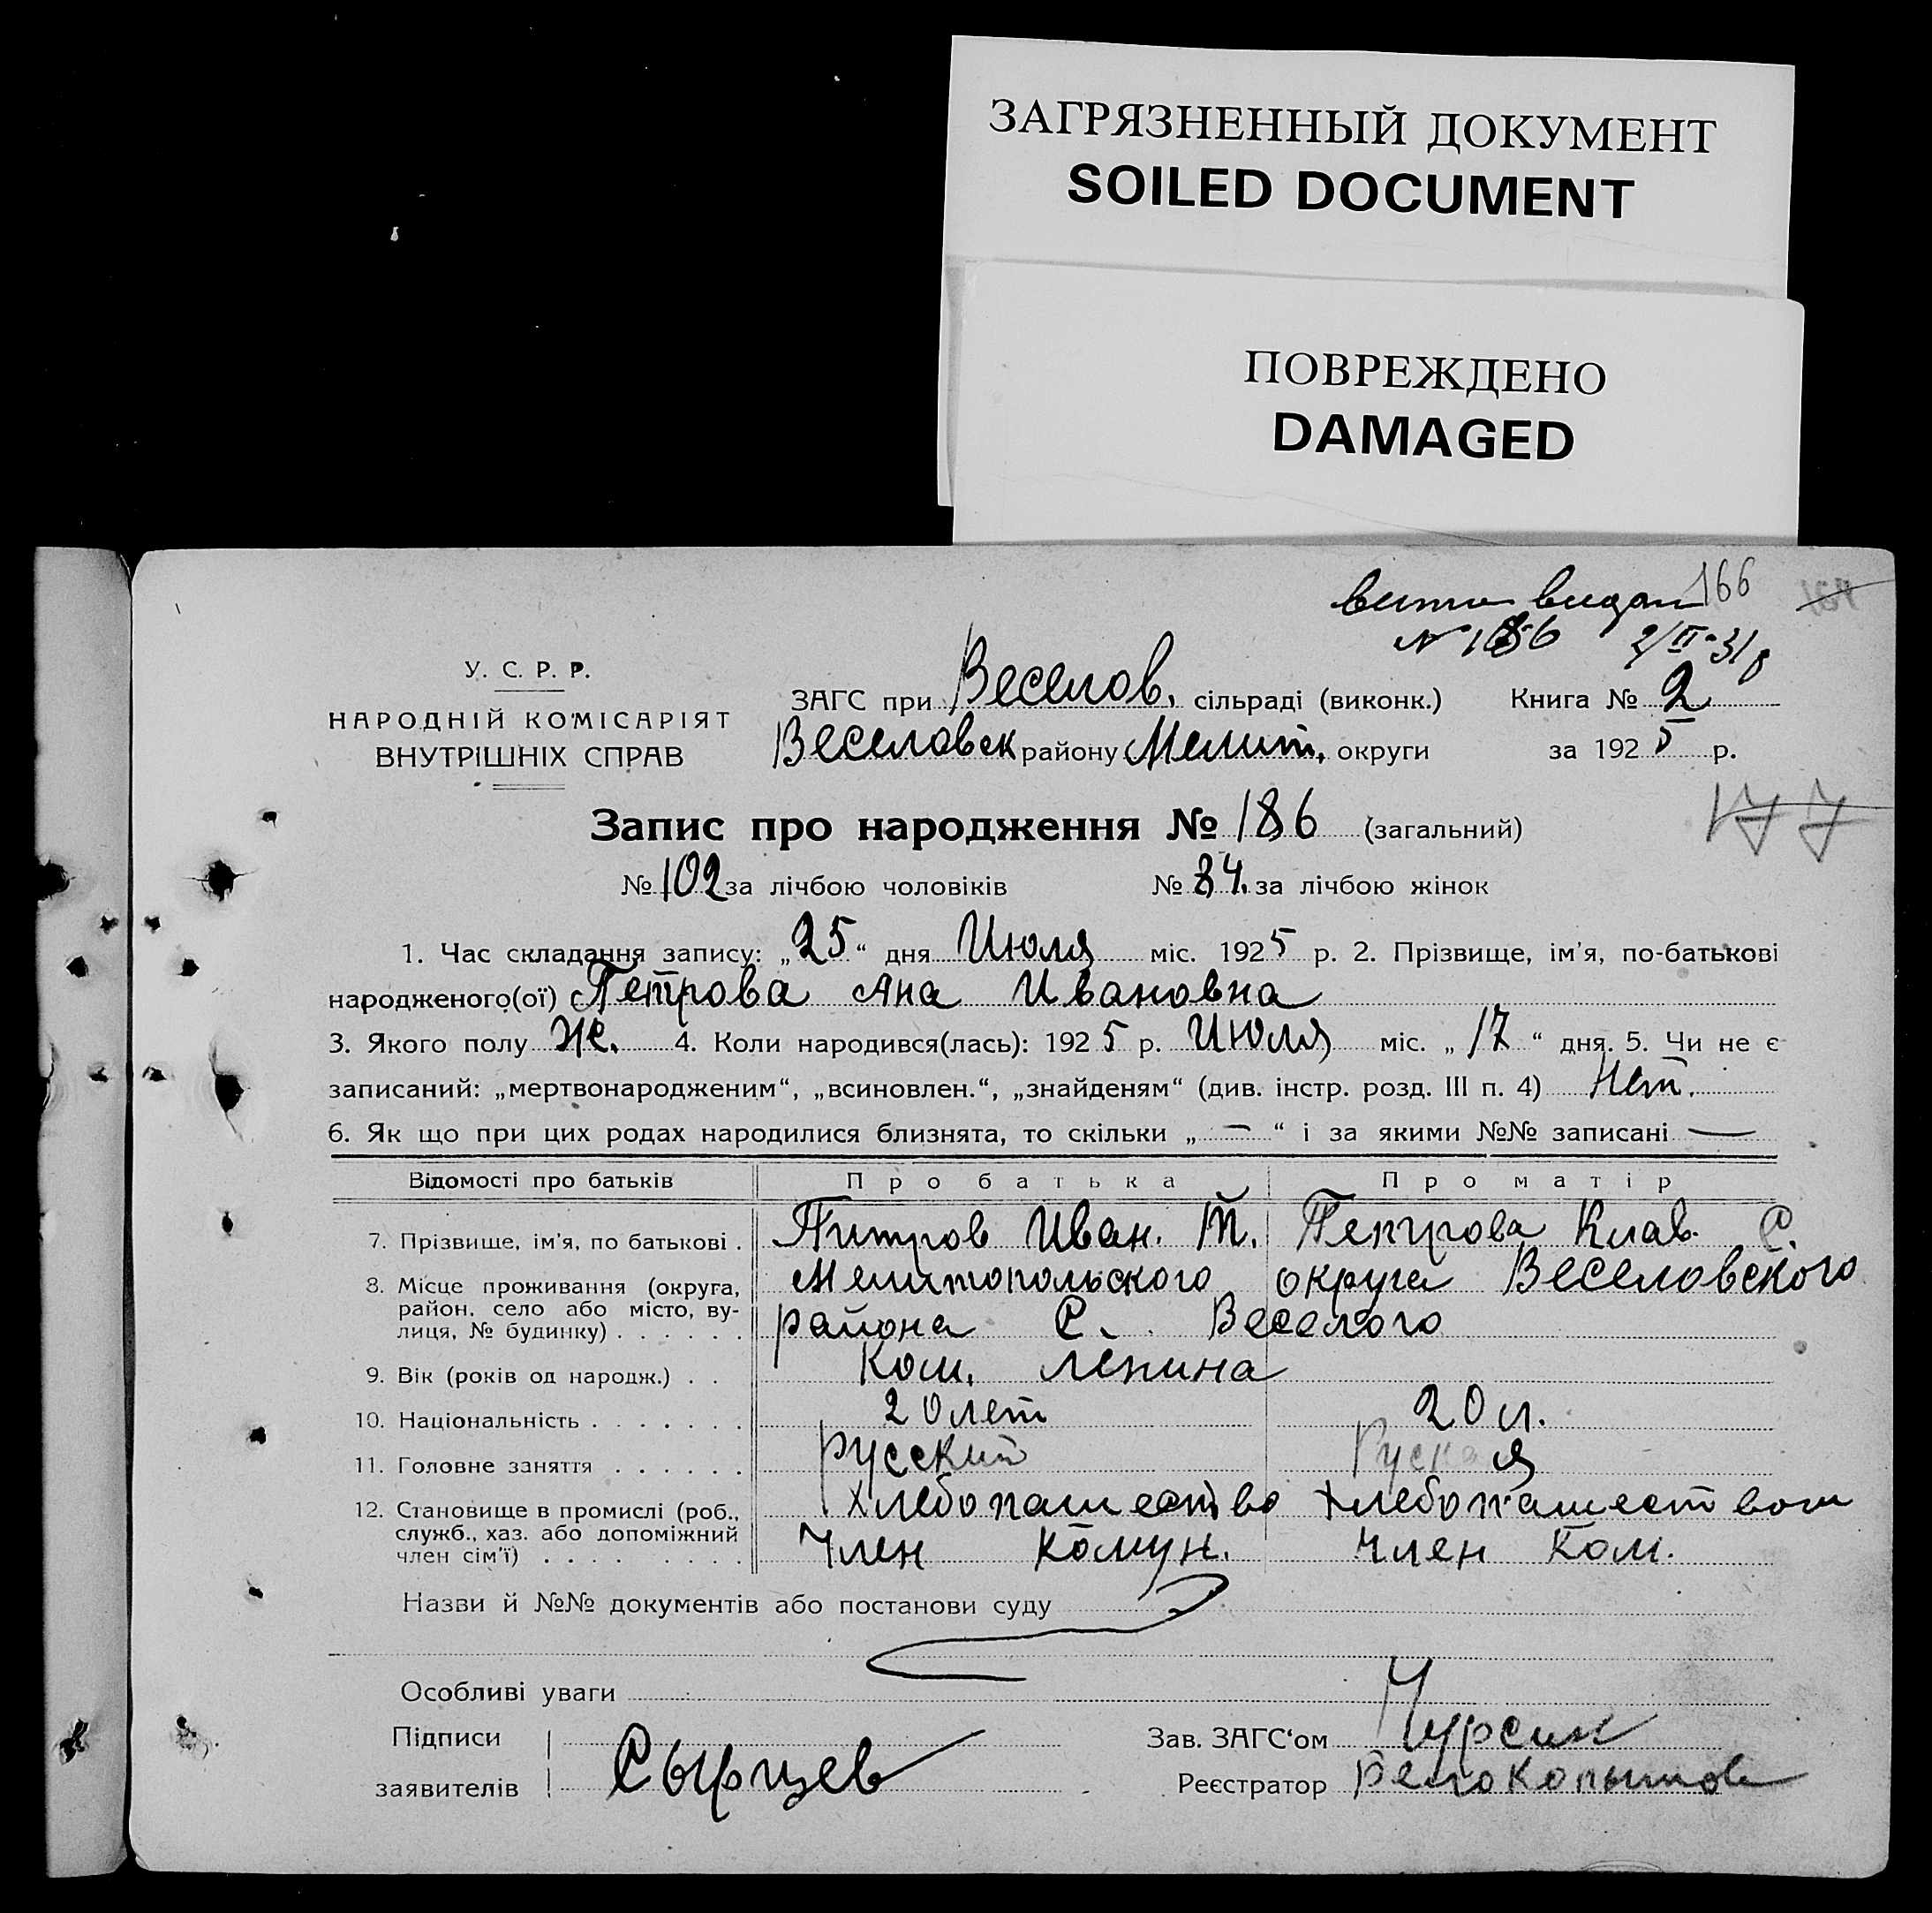 ЗАГРЯЗНЕННЫЙ ДОКУМЕНТ
SOILED DOCUMENT
ПОВРЕЖДЕНО
DAMAGED
166
видан
№ 186 2/II-31р
У. С. Р. Р.
НАРОДНІЙ КОМІСАРІЯТ
ВНУТРІШНІХ СПРАВ
ЗАГС при Веселов. сільраді (виконк.) Книга № 2
Веселовск району Мелит. округи за 1925 р.
Запис про народження № 186 (загальний)
177
№ 102 за лічбою чоловіків № 84. за лічбою жінок
1. Час складання запису: „25“ дня Июля міс. 1925 р. 2. Прізвище, ім'я, по-батькові
народженого(ої) Петрова Ана Ивановна
3. Якого полу Ж. 4. Коли народився(лась): 1925 р. Июля міс. „17“ дня. 5. Чи не є
записаний: „мертвонародженим“, „всиновлен.“, „знайденям“ (див. інстр. розд. III п. 4) Нет.
6. Як що при цих родах народилися близнята, то скільки „—“ і за якими №№ записані —
Відомості про батьків Про батька Про матір
7. Прізвище, ім'я, по батькові . Питров Иван. Т. Петрова Клав. С.
8. Місце проживання (округа, Мелитопольского округа Веселовского
район, село або місто, ву- района С. Веселого
лиця, № будинку) . . . . . .
9. Вік (років од народж.) . . Ком. Ленина
10. Національність . . . . . . . 20 лет 20 л.
11. Головне заняття . . . . . . русский Руская
12. Становище в промислі (роб., Хлебопашество Хлебопашеством
служб., хаз. або допоміжний
член сім'ї) . . . . . . . . . Член Комун. Член Ком.
Назви й №№ документів або постанови суду
Особливі уваги
Підписи
заявителів Сырцев
Зав. ЗАГС‘ом Чурсин
Реєстратор Белокопытов